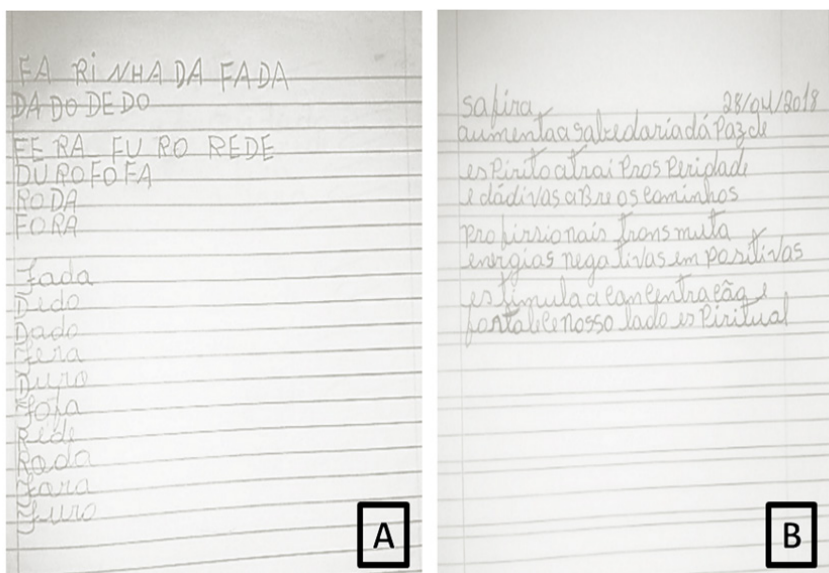 FA RiNHA DA FADA
DA DO DE DO
FE RA FU RO REDE
DUROFOFA
RODA
FORA
Fada
Dedo
Dado
Fera
Duro
Fofa
Rede
Roda
Fora
Furo
A
safira 28/04/2018
aumentaasabedoriadáPazde
esPiritoatraiProsPeridade
e dádivasaBreoscaminhos
profissionais transmuta
energias negativas em positivas
estimulaaconcentração e
fortalecenosso lado esPiritual
B